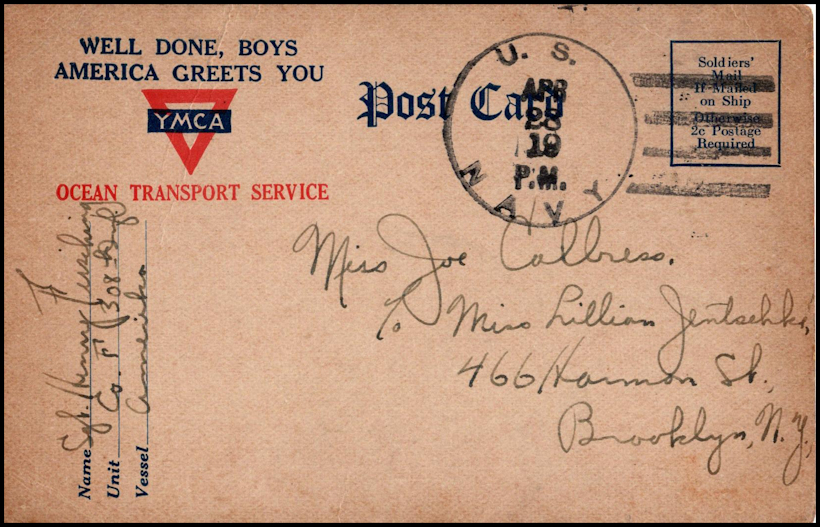 WELL DONE, BOYS
AMERICA GREETS YOU
YMCA
OCEAN TRANSPORT SERVICE
Post Card
U. S.
APR
28
19
P.M.
NAVY
Soldiers'
Mail
If Mailed
on Ship
Otherwise
2c Postage
Required
Miss Joe Calbress.
c/o Miss Lillian Jentschke,
466 Harmon St.,
Brooklyn, N.Y.
Name Sgt. Henry
Unit Co. F 308
Vessel